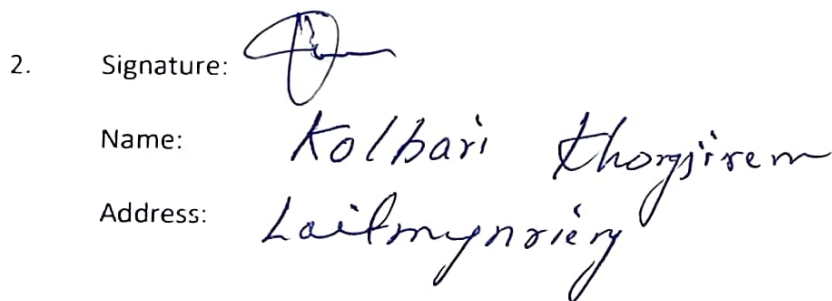 2. Signature:
Name: Kolbari Khongjirem
Address: Laitmynrieng